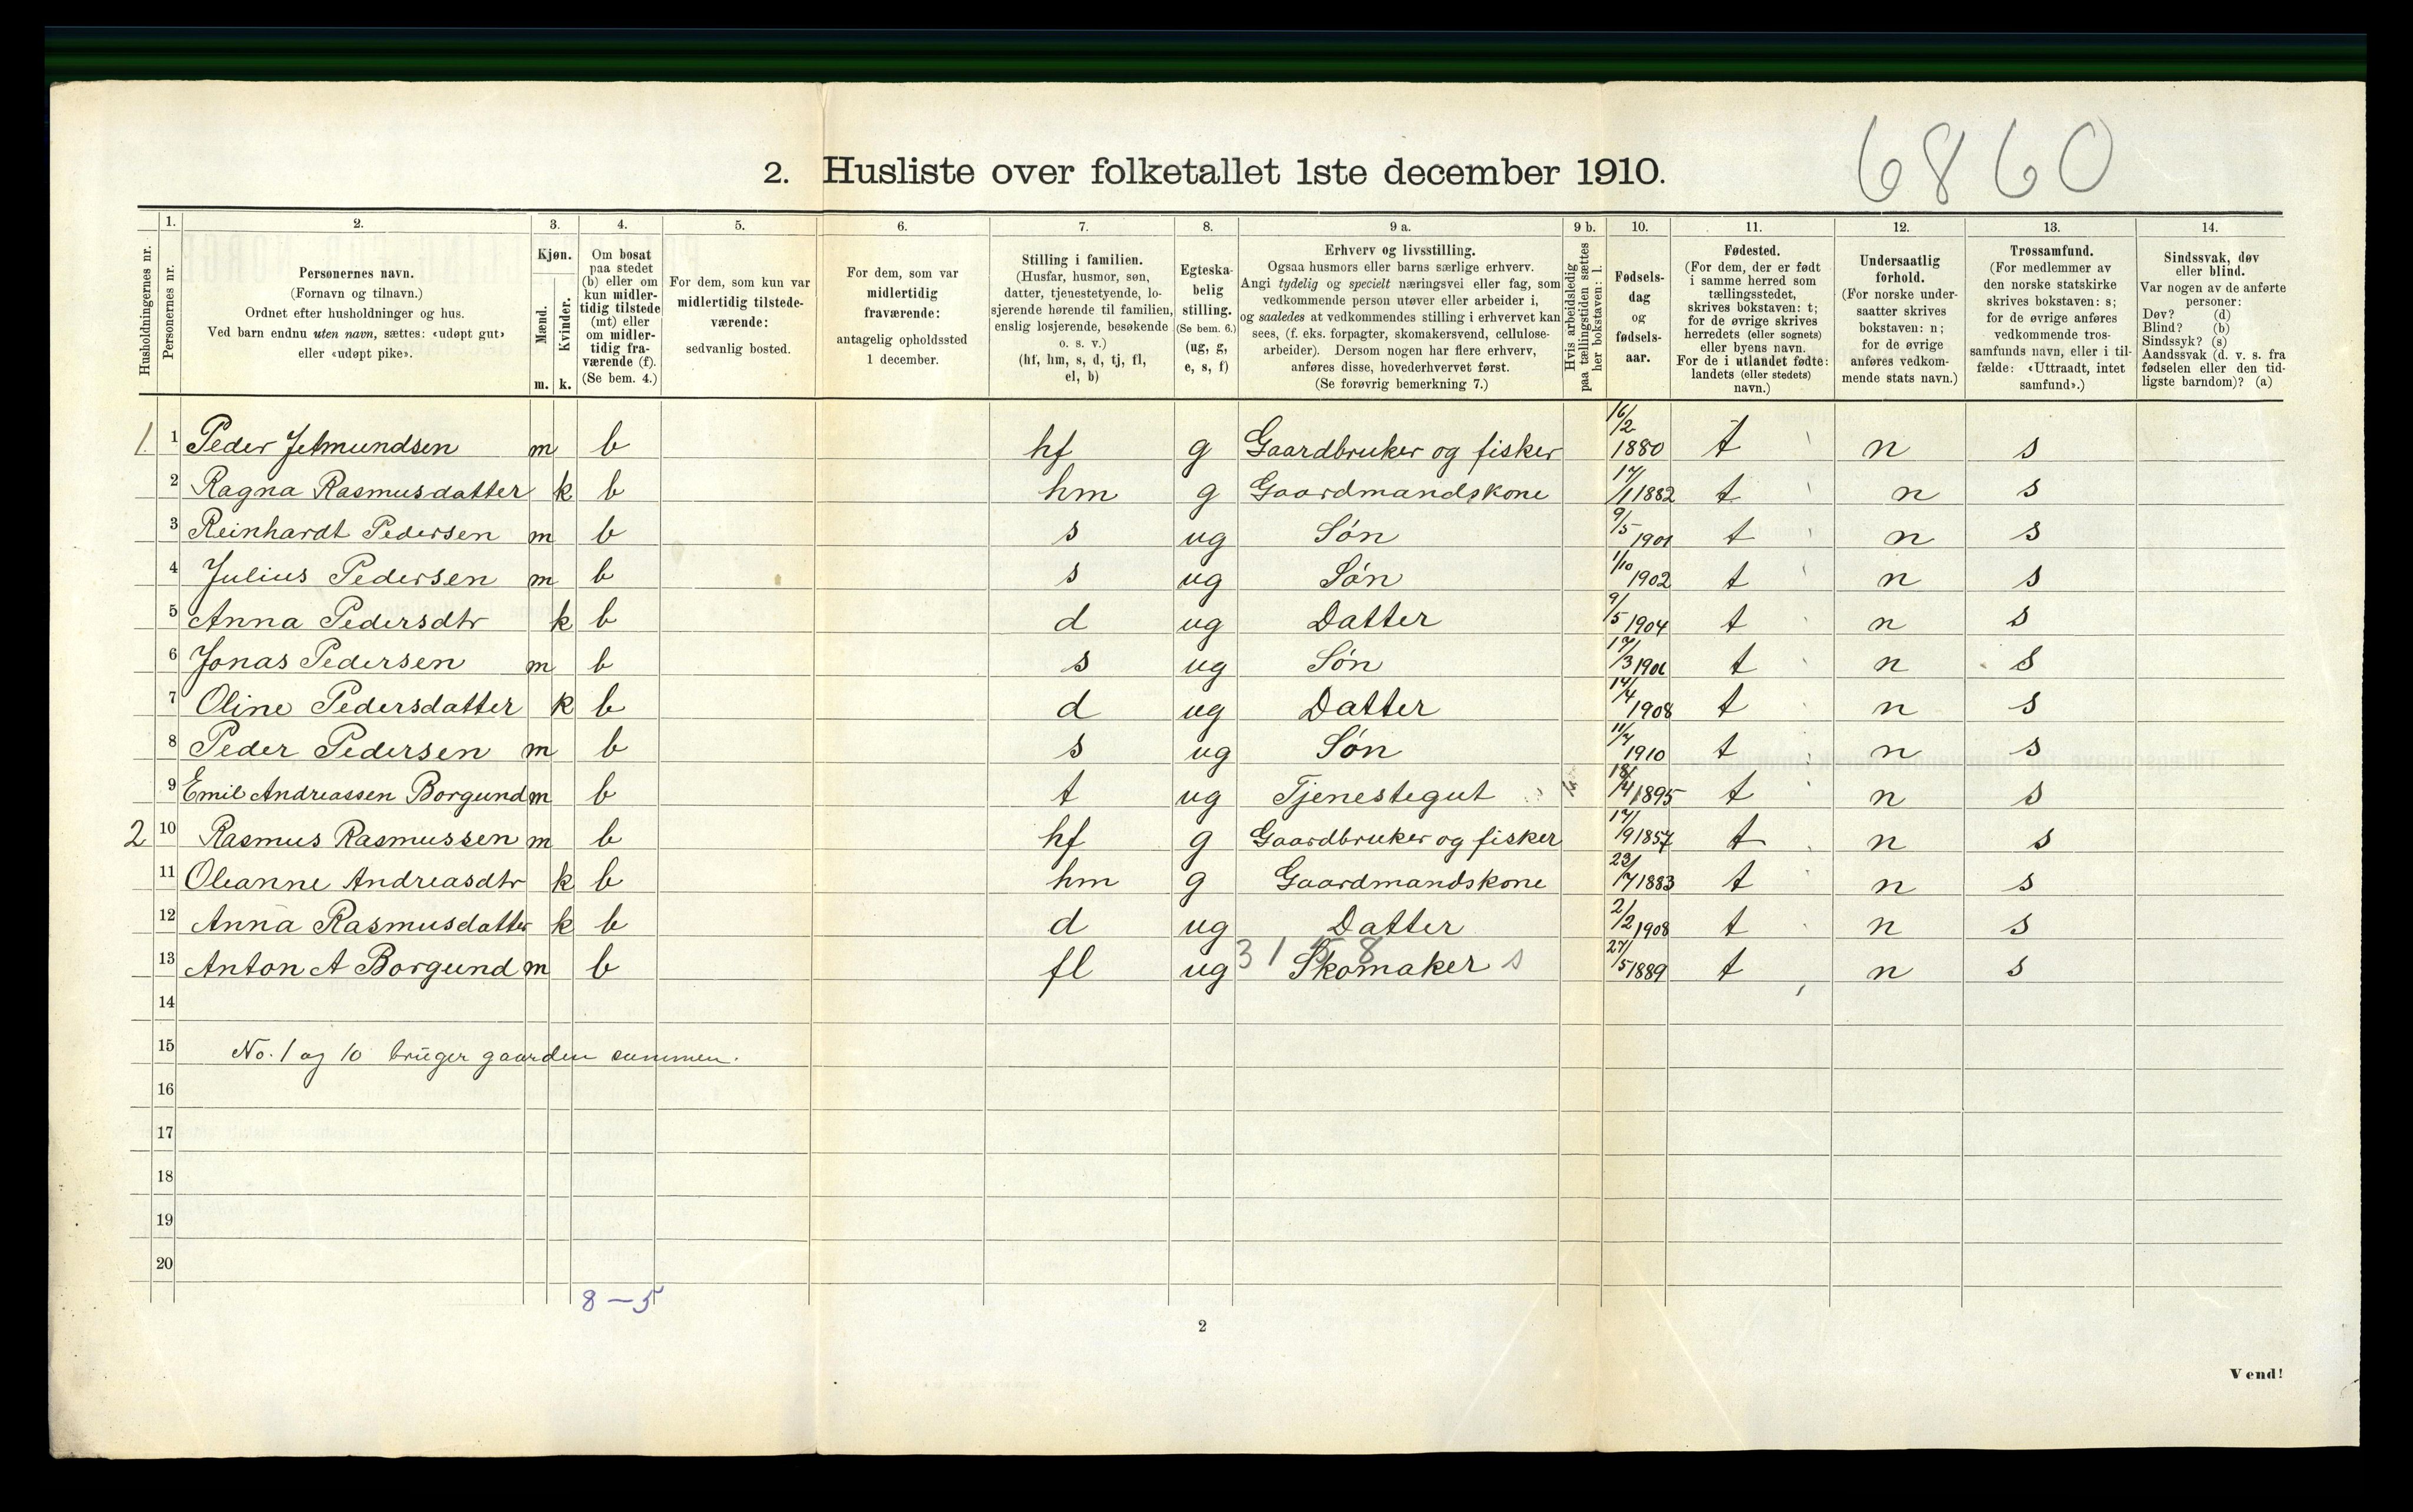 6860
2. Husliste over folketallet 1ste december 1910.
Husholdningernes nr.
1. Personernes nr.
2. Personernes navn. (Fornavn og tilnavn.) Ordnet efter husholdninger og hus. Ved barn endnu uten navn, sættes: «udøpt gut» eller «udøpt pike».
3. Kjøn. Mænd. m. Kvinder. k.
4. Om bosat paa stedet (b) eller om kun midlertidig tilstede (mt) eller om midlertidig fraværende (f). (Se bem. 4.)
5. For dem, som kun var midlertidig tilstedeværende: sedvanlig bosted.
6. For dem, som var midlertidig fraværende: antagelig opholdssted 1 december.
7. Stilling i familien. (Husfar, husmor, søn, datter, tjenestetyende, losjerende hørende til familien, enslig losjerende, besøkende o. s. v.) (hf, hm, s, d, tj, fl, el, b)
8. Egteskabelig stilling. (Se bem. 6.) (ug, g, e, s, f)
9 a. Erhverv og livsstilling. Ogsaa husmors eller barns særlige erhverv. Angi tydelig og specielt næringsvei eller fag, som vedkommende person utøver eller arbeider i, og saaledes at vedkommendes stilling i erhvervet kan sees, (f. eks. forpagter, skomakersvend, cellulosearbeider). Dersom nogen har flere erhverv, anføres disse, hovederhvervet først. (Se forøvrig bemerkning 7.)
9 b. Hvis arbeidsledig paa tællingstiden sættes her bokstaven: l.
10. Fødselsdag og fødselsaar.
11. Fødested. (For dem, der er født i samme herred som tællingsstedet, skrives bokstaven: t; for de øvrige skrives herredets (eller sognets) eller byens navn. For de i utlandet fødte: landets (eller stedets) navn.)
12. Undersaatlig forhold. (For norske undersaatter skrives bokstaven: n; for de øvrige anføres vedkommende stats navn.)
13. Trossamfund. (For medlemmer av den norske statskirke skrives bokstaven: s; for de øvrige anføres vedkommende trossamfunds navn, eller i tilfælde: «Uttraadt, intet samfund».)
14. Sindssvak, døv eller blind. Var nogen av de anførte personer: Døv? (d) Blind? (b) Sindssyk? (s) Aandssvak (d. v. s. fra fødselen eller den tidligste barndom)? (a)
1. 1 Peder Jetmundsen m b hf g Gaardbruker og fisker 16/2 1880 t n s
2 Ragna Rasmusdatter k b hm g Gaardmandskone 17/11882 t n s
3 Reinhardt Pedersen m b s ug Søn 9/5 1901 t n s
4 Julius Pedersen m b s ug Søn 1/10 1902 t n s
5 Anna Pedersdtr k b d ug Datter 9/5 1904 t n s
6 Jonas Pedersen m b s ug Søn 17/3 1906 t n s
7 Oline Pedersdatter k b d ug Datter 14/4 1908 t n s
8 Peder Pedersen m b s ug Søn 11/4 1910 t n s
9 Emil Andreassen Borgund m b t ug Tjenestegut 18/4 1895 t n s
2 10 Rasmus Rasmussen m b hf g Gaardbruker og fisker 17/9 1857 t n s
11 Oleanne Andreasdtr k b hm g Gaardmandskone 23/7 1883 t n s
12 Anna Rasmusdatter k b d ug Datter 2/2 1908 t n s
13 Anton A Borgund m b fl ug Skomaker s 27/5 1889 t n s
14
15 No. 1 og 10 bruger gaarden sammen.
16
17
18
19
20
8 – 5
2
Vend!